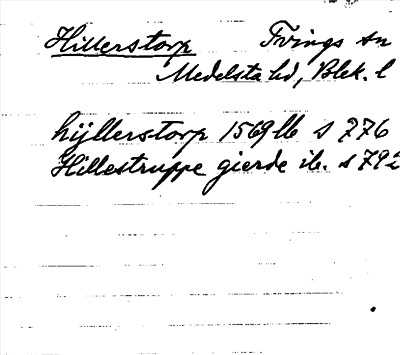 Hillerstorp Tvings sn
Medelsta hd, Blek. l
hijllerstorp 1569 lb s 776
Hillestruppe gierde ib. s 792